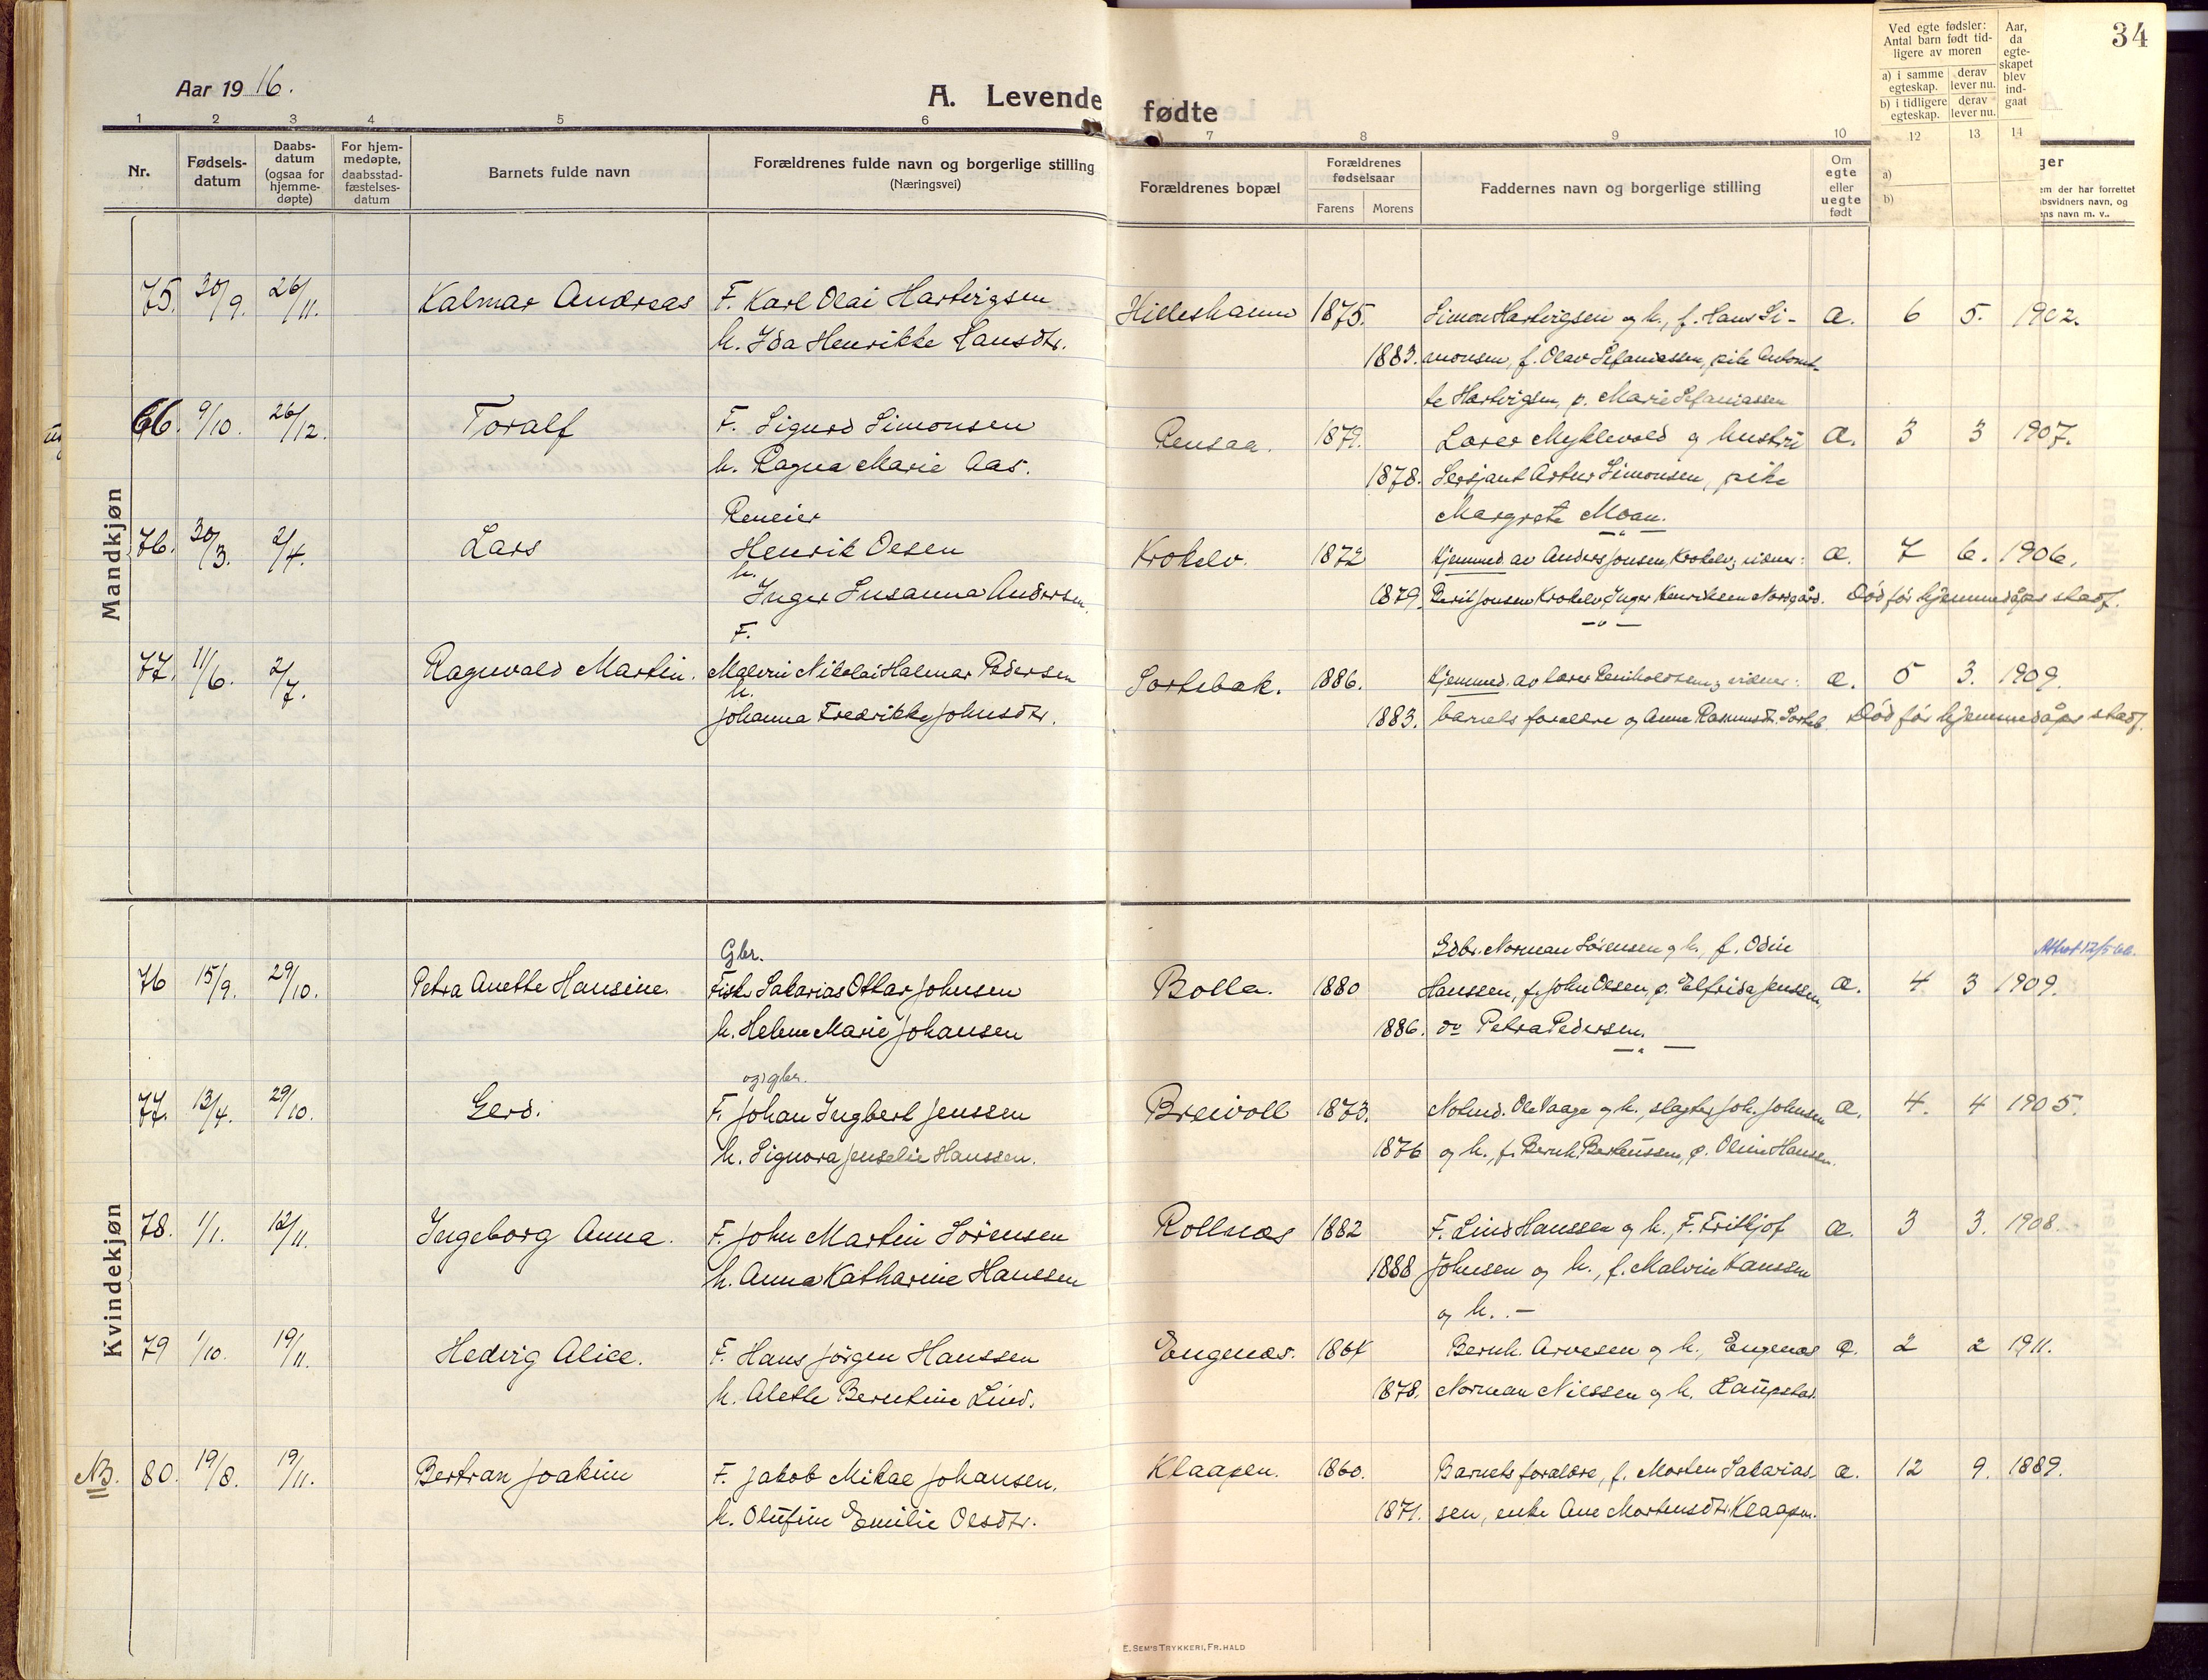 Aar 1916.
A. Levende fødte
34
Ved egte fødsler: Antal barn født tidligere av moren
a) i samme egteskap. derav lever nu.
b) i tidligere egteskap. derav lever nu.
Aar, da egteskapet blev indgaat
1 2 3 4 5 6 7 8 9 10 12 13 14
Nr.
Fødselsdatum
Daabsdatum (ogsaa for hjemmedøpte)
For hjemmedøpte, daabsstadfæstelsesdatum
Barnets fulde navn
Forældrenes fulde navn og borgerlige stilling
(Næringsvei)
Forældrenes bopæl
Forældrenes fødselsaar
Farens Morens
Faddernes navn og borgerlige stilling
Om egte eller uegte født
a)
b)
ger
em der har forrettet
bsvidners navn, og
ens navn m. v..
Mandkjøn
75. 30/9. 26/11. Kalmar Andreas F. Karl Olai Hartvigsen Hilleshamn 1875. Simon Hartvigsen og h., f. Hans Si- æ. 6 5. 1902.
h. Ida Henrikke Hansdtr. 1883. monsen, f. Olav Sefaniassen, pike
te Hartvigsen, p. Marie Sefaniassen
66. 9/10. 26/12. Toralf F. Sigurd Simonsen Rensaa. 1879. Lærer Myklevold og hustru æ. 3 3 1907.
h. Ragna Marie Aas. 1878. Sersjant Artur Simonsen, pike
Margrete Moan.
Reneier
76. 30/3. 2/4. Lars Henrik Olsen Krokelv. 1872 Hjemmed. av Anders Jonsen, Krokelv; vidner: æ. 7 6. 1906.
h. Inger Susanna Andersen. 1879. Berit Jonsen Krokelv, Inger Henriksen Nordgård. Død før hjemmedåps stadf.
F.
77. 11/6. 2/7. Ragnvald Martin. Malvin Nikolai Halmar Pedersen Sortebak. 1886. Hjemmed. av lærer Reinholdsen; vidner: æ. 5 3. 1909.
h. Johanna Fredrikke Johnsdtr. 1883. barnets forældre og Anna Rasmusdt. Sorteb. Død før hjemmedåps stadf.
Kvindekjøn
Gbr. Gdbr. Norman Sørensen og h., f. Odin
76 15/9. 29/10. Petra Anette Hansine. Fisk. Sakarias Ottar Johnsen Bolla. 1880 Hanssen, f. John Olsen, p. Elfrida Jenssen, æ. 4 3 1909.
h. Helene Marie Johansen 1886. do Petra Pedersen.
og gbr.
77. 13/4. 29/10. Gerd. F. Johan Ingbert Jenssen Breivoll 1873. Notmd. Ole Vaage og h., slagter Joh. Johnsen æ. 4. 4 1905.
h. Signora Jenselie Hanssen. 1876 og h., f. Bernh. Berteussen, p. Oline Hansen.
78. 1/1. 12/11. Ingeborg Anna. F. John Martin Sørensen Rollnes 1882 F. Lind Hanssen og h., F. Fritjof æ. 3 3. 1908.
h. Anna Katharine Hanssen 1888 Johnsen og h., f. Malvin Hanssen
og h. . –
79 1/10. 19/11. Hedvig Alice. F. Hans Jørgen Hanssen Engenæs. 1864 Bernh. Arvesen og h., Engenæs æ. 2 2 1911.
h. Alette Berntine Lind. 1878. Norman Nilssen og h. Laupstad.
NB. 80. 19/8. 19/11. Bertran Joakim F. Jakob Mikal Johansen. Klaapen. 1860. Barnets forældre, f. Morten Sakarias- æ. 12 9. 1889.
h. Olufine Emilie Olsdtr. 1871. sen, enke Ane Mortensdtr. Klaapen.
E. SEM'S TRYKKERI, FR.HALD